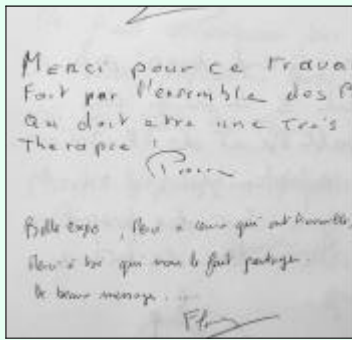 Merci pour ce travai
Fait par l'ensemble des P
Qui doit etre une très
Therapie !
Belle expo, à ceux qui ont travaillé,
à toi qui nous le fait partager.
le beau message...